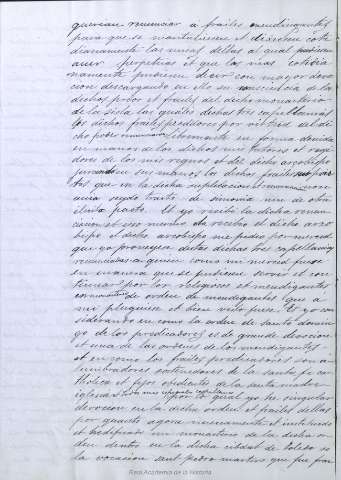 querian renunciar a frailes mendingantes
para que se mantubiesen et dixesen coti
dianamente las misas dellas al qual pudiesen
auer perpetuas et que las misas cotidia
namente pudiesen decir con mayor devo
cion descargando en ello su consciencia de la
dichos priol et frailes del dicho monesterio
de la sisla las quales dichas tres capellanias
los dichos frailes pedidores por virtud del di
cho poder renunciaron libremente en forma devida
en manos de los dichos mis tutores et regi
dores de los mis regnos et del dicho arzobispo
jurando en sus manos los dichos frailes
que en la dicha suplicacion et renunciacion non
auia seydo trato de simonia nin de obra
ilicita pacto. Et yo recibi la dicha renun
cacion et eso mesmo la recibio el dicho arzo
bispo et el dicho arzobispo me pedio por merced
que yo proveyese destas dichas tres capellanias
renunciadas a quien como mi merced fuese
en manera que se pudiesen servir et con
tinuar por los religiosos et mendigantes
de orden de mendigantes que a
mi pluguiese et bien visto fuese. Et yo con
siderando en como la orden de santo domin
go de los predicadores es de grande devocion
et una de las ordenes de los mendigantes
et en como los frailes predicadores son a
lumbradores entendedores de la santa fe ca
tholica et fijos obedientes de la santa madre
iglesia por lo qual yo he singular
devocion en la dicha orden et frailes dellas
por quanto agora nuevamente et
et hedificado un monesterio de la dicha or
den dentro en la dicha cibdad de toledo so
la vocacion sant pedro martir que fue fra
Real Academia de la Historia